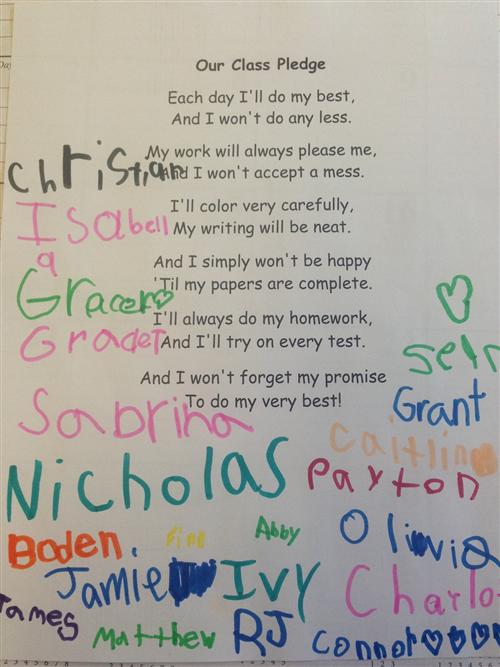 Our Class Pledge
Each day I'll do my best,
And I won't do any less.
My work will always please me,
And I won't accept a mess.
I'll color very carefully,
My writing will be neat.
And I simply won't be happy
'Til my papers are complete.
I'll always do my homework,
And I'll try on every test.
And I won't forget my promise
To do my very best!
Christian
Isabell
a
Gracer
GraceT
Sabrina
Grant
Caitlin
Nicholas
Paxton
Olivia
Abby
Finn
Boden.
Jamie
Ivy
Charlo
James
Matthew
RJ
Connor